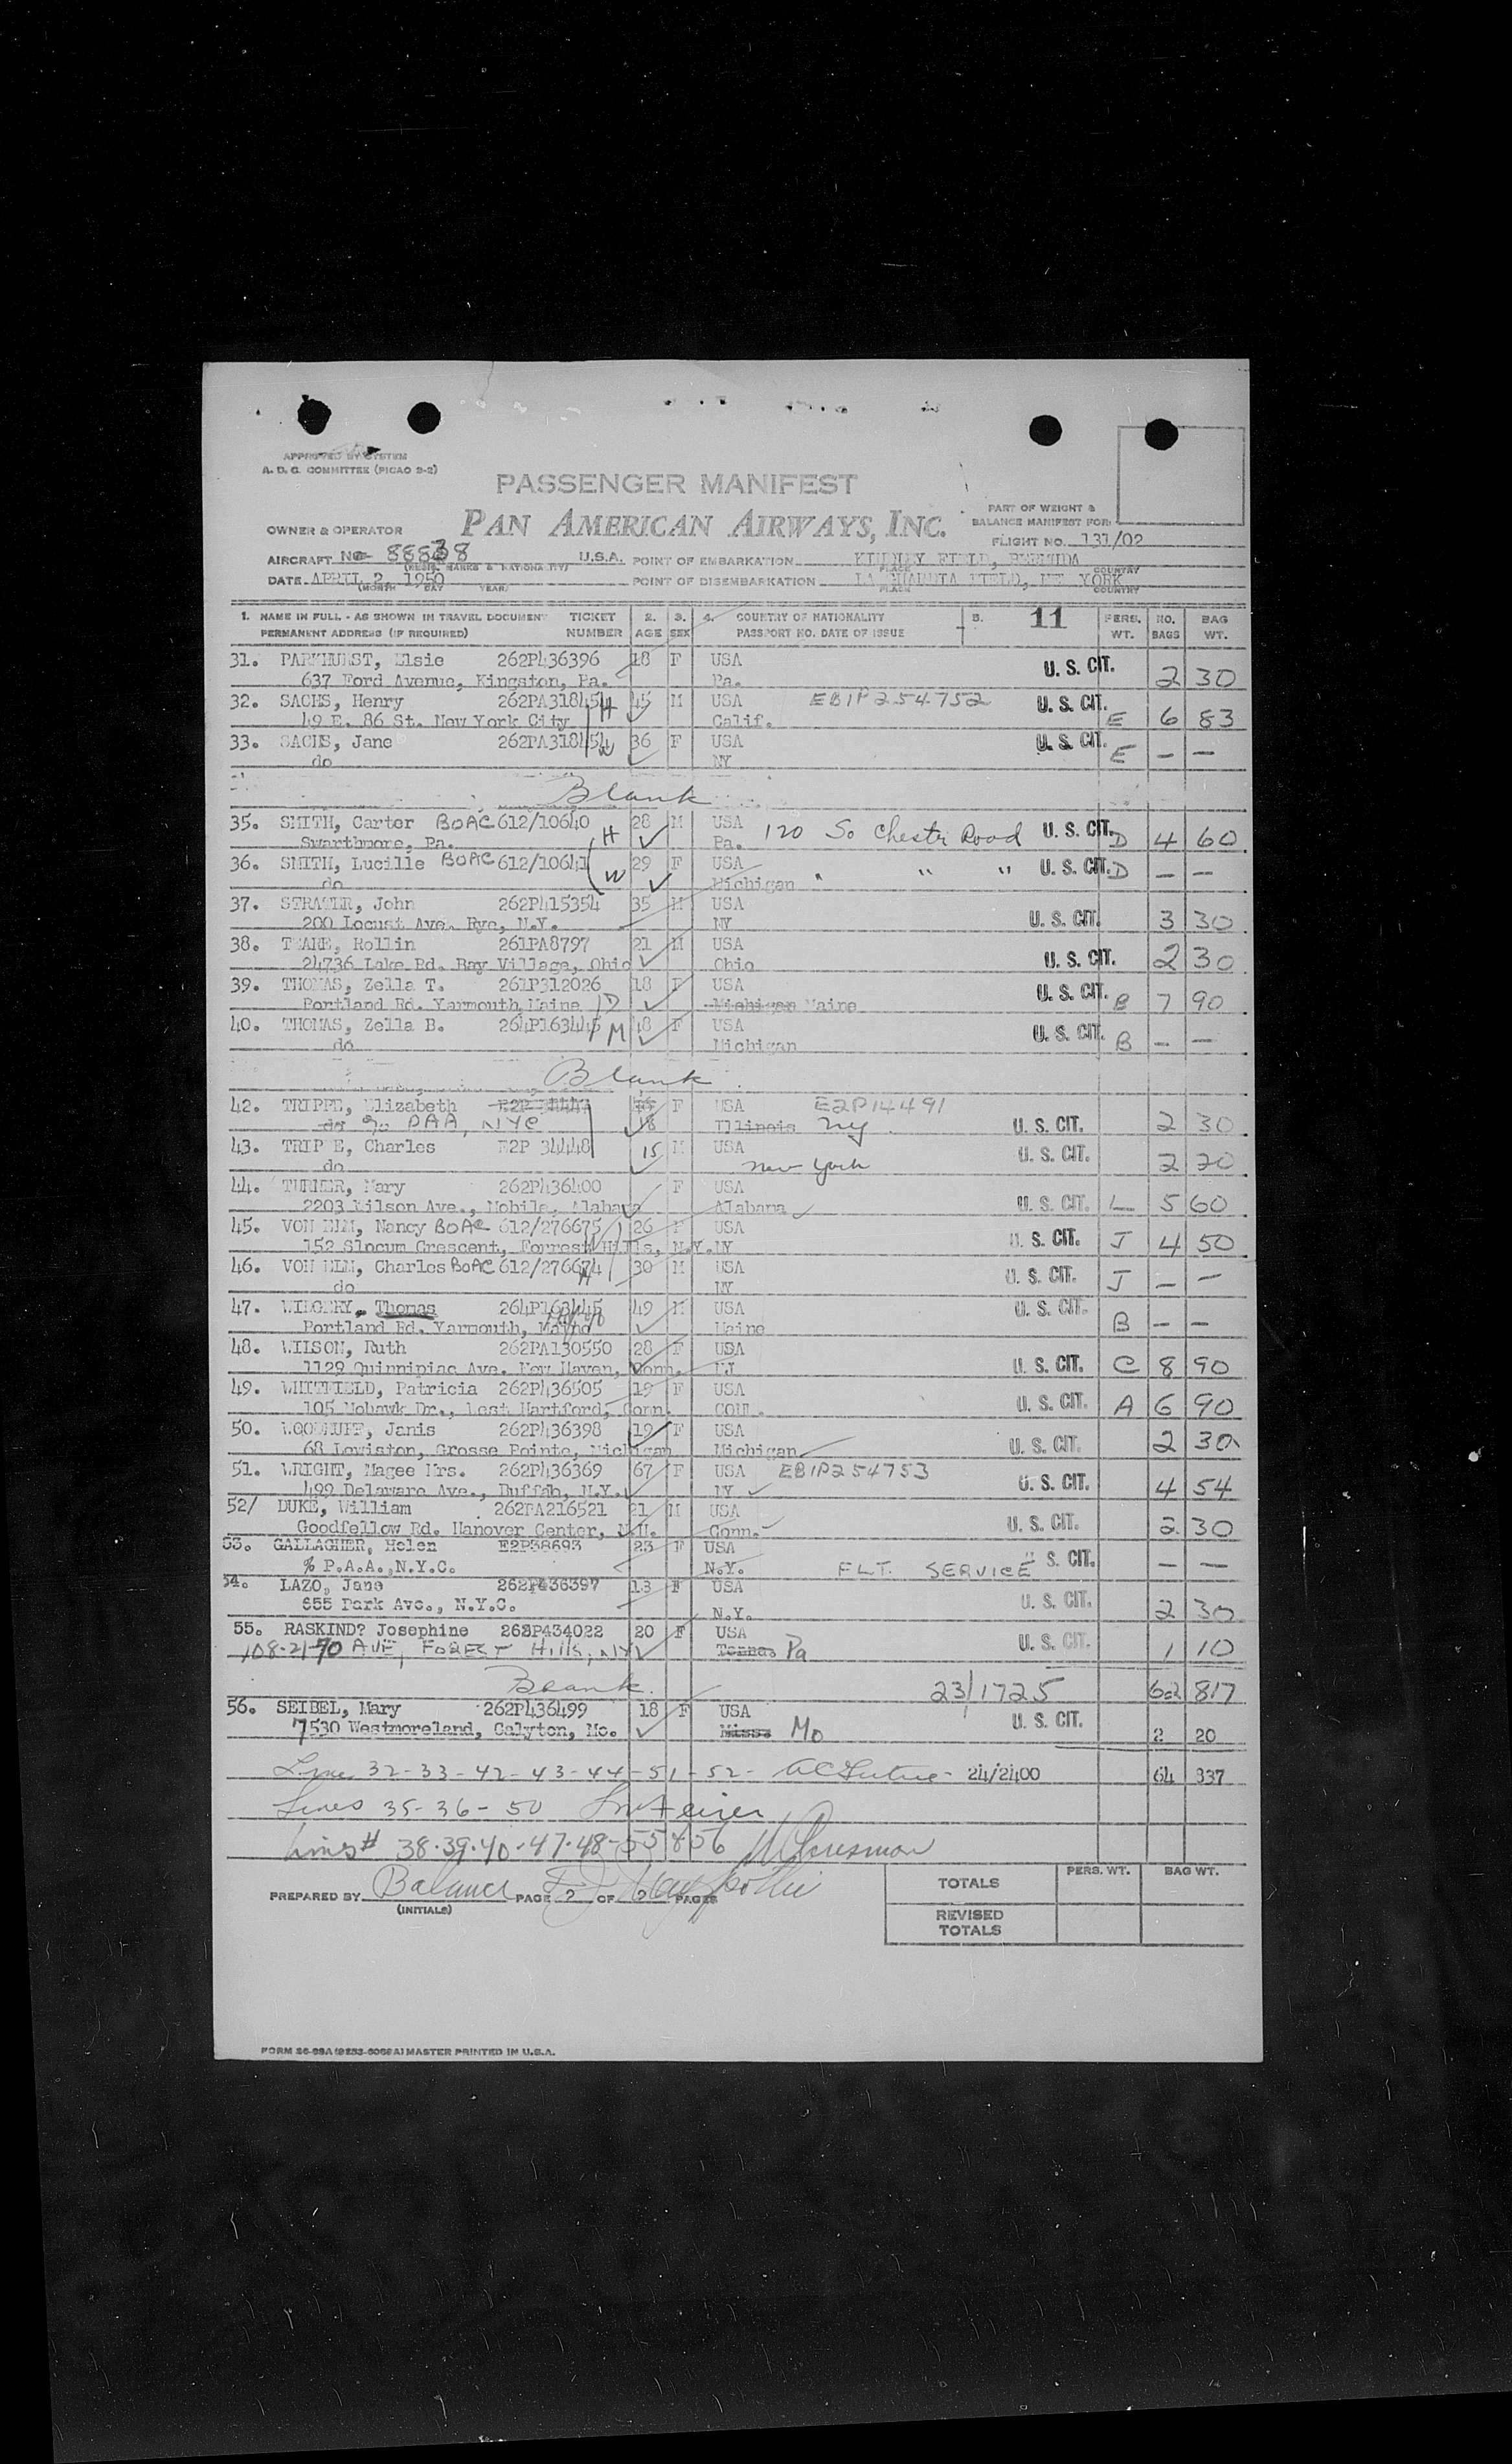 APPROVED BY SYSTEM
A. D. C. COMMITTEE (PICAO 2-2)
PASSENGER MANIFEST
OWNER & OPERATOR PAN AMERICAN AIRWAYS, INC.
PART OF WEIGHT &
BALANCE MANIFEST FOR:
FLIGHT NO. 131/02
AIRCRAFT NC- 88838 U.S.A. POINT OF EMBARKATION KINDLEY FIELD, BERMUDA
(REGIS. MARKS & NATIONALITY) PLACE COUNTRY
DATE APRIL 2, 1950 POINT OF DISEMBARKATION LA GUARDIA FIELD, NEW YORK
(MONTH DAY YEAR) PLACE COUNTRY
1. NAME IN FULL - AS SHOWN IN TRAVEL DOCUMENT TICKET 2. 3. 4. COUNTRY OF NATIONALITY 5. 11 PERS. NO. BAG
PERMANENT ADDRESS (IF REQUIRED) NUMBER AGE SEX PASSPORT NO. DATE OF ISSUE WT. BAGS WT.
31. PARKHURST, Elsie 262P436396 18 F USA U. S. CIT.
637 Ford Avenue, Kingston, Pa. Pa. 2 30
32. SACHS, Henry 262PA318454 H 45 M USA EB1P254752 U. S. CIT.
49 E. 86 St. New York City Calif. E 6 83
33. SACHS, Jane 262PA318454 W 36 F USA U. S. CIT. E — —
do NY
Blank
35. SMITH, Carter BOAC 612/10640 28 M USA 120 So Chester Road U. S. CIT. D 4 60
Swarthmore, Pa. H Pa.
36. SMITH, Lucille BOAC 612/10641 W 29 F USA " " " U. S. CIT. D — —
do Michigan
37. STRATER, John 262P415354 35 M USA
200 Locust Ave. Rye, N.Y. NY U. S. CIT. 3 30
38. TEARE, Rollin 261PA8797 21 M USA
24736 Lake Rd. Bay Village, Ohio Ohio U. S. CIT. 2 30
39. THOMAS, Zella T. 261P312026 18 F USA U. S. CIT.
Portland Rd. Yarmouth, Maine D Michigan Maine B 7 90
40. THOMAS, Zella B. 264P163445 M 48 F USA U. S. CIT. B — —
do Michigan
Blank
42. TRIPPE, Elizabeth F USA E2P14491
do % PAA, NYC 18 Illinois NY U. S. CIT. 2 30
43. TRIPPE, Charles E2P 34448 15 M USA U. S. CIT.
do New York 2 20
44. TURNER, Mary 262P436400 F USA
2203 Wilson Ave., Mobile, Alabama Alabama U. S. CIT. L 5 60
45. VON ELM, Nancy BOAC 612/276675 26 F USA
152 Slocum Crescent, Forrest Hills, N.Y. NY U. S. CIT. J 4 50
46. VON ELM, Charles BOAC 612/276674 H 30 M USA U. S. CIT. J — —
do NY
47. WILGERY, Thomas 264P163445 49 M USA U. S. CIT.
Portland Rd. Yarmouth, Maine Maine B — —
48. WILSON, Ruth 262PA130550 28 F USA
1129 Quinnipiac Ave. New Haven, Conn. NJ U. S. CIT. C 8 90
49. WHITFIELD, Patricia 262P436505 19 F USA
105 Mohawk Dr., West Hartford, Conn. CONN. U. S. CIT. A 6 90
50. WOODRUFF, Janis 262P436398 19 F USA
68 Lewiston, Grosse Pointe, Michigan Michigan U. S. CIT. 2 30
51. WRIGHT, Magee Mrs. 262P436369 67 F USA EB1P254753
499 Delaware Ave., Buffalo, N.Y. NY U. S. CIT. 4 54
52/ DUKE, William 262PA216521 21 M USA
Goodfellow Rd. Hanover Center, N.H. Conn. U. S. CIT. 2 30
53. GALLAGHER, Helen E2P38693 23 F USA
% P.A.A., N.Y.C. N.Y. FLT. SERVICE U. S. CIT. — —
54. LAZO, Jane 262P436397 18 F USA
655 Park Ave., N.Y.C. N.Y. U. S. CIT. 2 30
55. RASKIND? Josephine 262P434022 20 F USA
108-21-70 AVE, FOREST Hills, NY Tennas Pa U. S. CIT. 1 10
Blank 23/1725 62 817
56. SEIBEL, Mary 262P436499 18 F USA
7530 Westmoreland, Calyton, Mo. Misss Mo U. S. CIT. 2 20
Line 32-33-42-43-44-51-52- 24/2400 64 837
Lines 35-36-50
Lines # 38-39-40-47-48-55 & 56
PREPARED BY Balance PAGE 2 OF 2 PAGES
(INITIALS)
PERS. WT. BAG WT.
TOTALS
REVISED
TOTALS
FORM 26-98A (9253-6069A) MASTER PRINTED IN U.S.A.